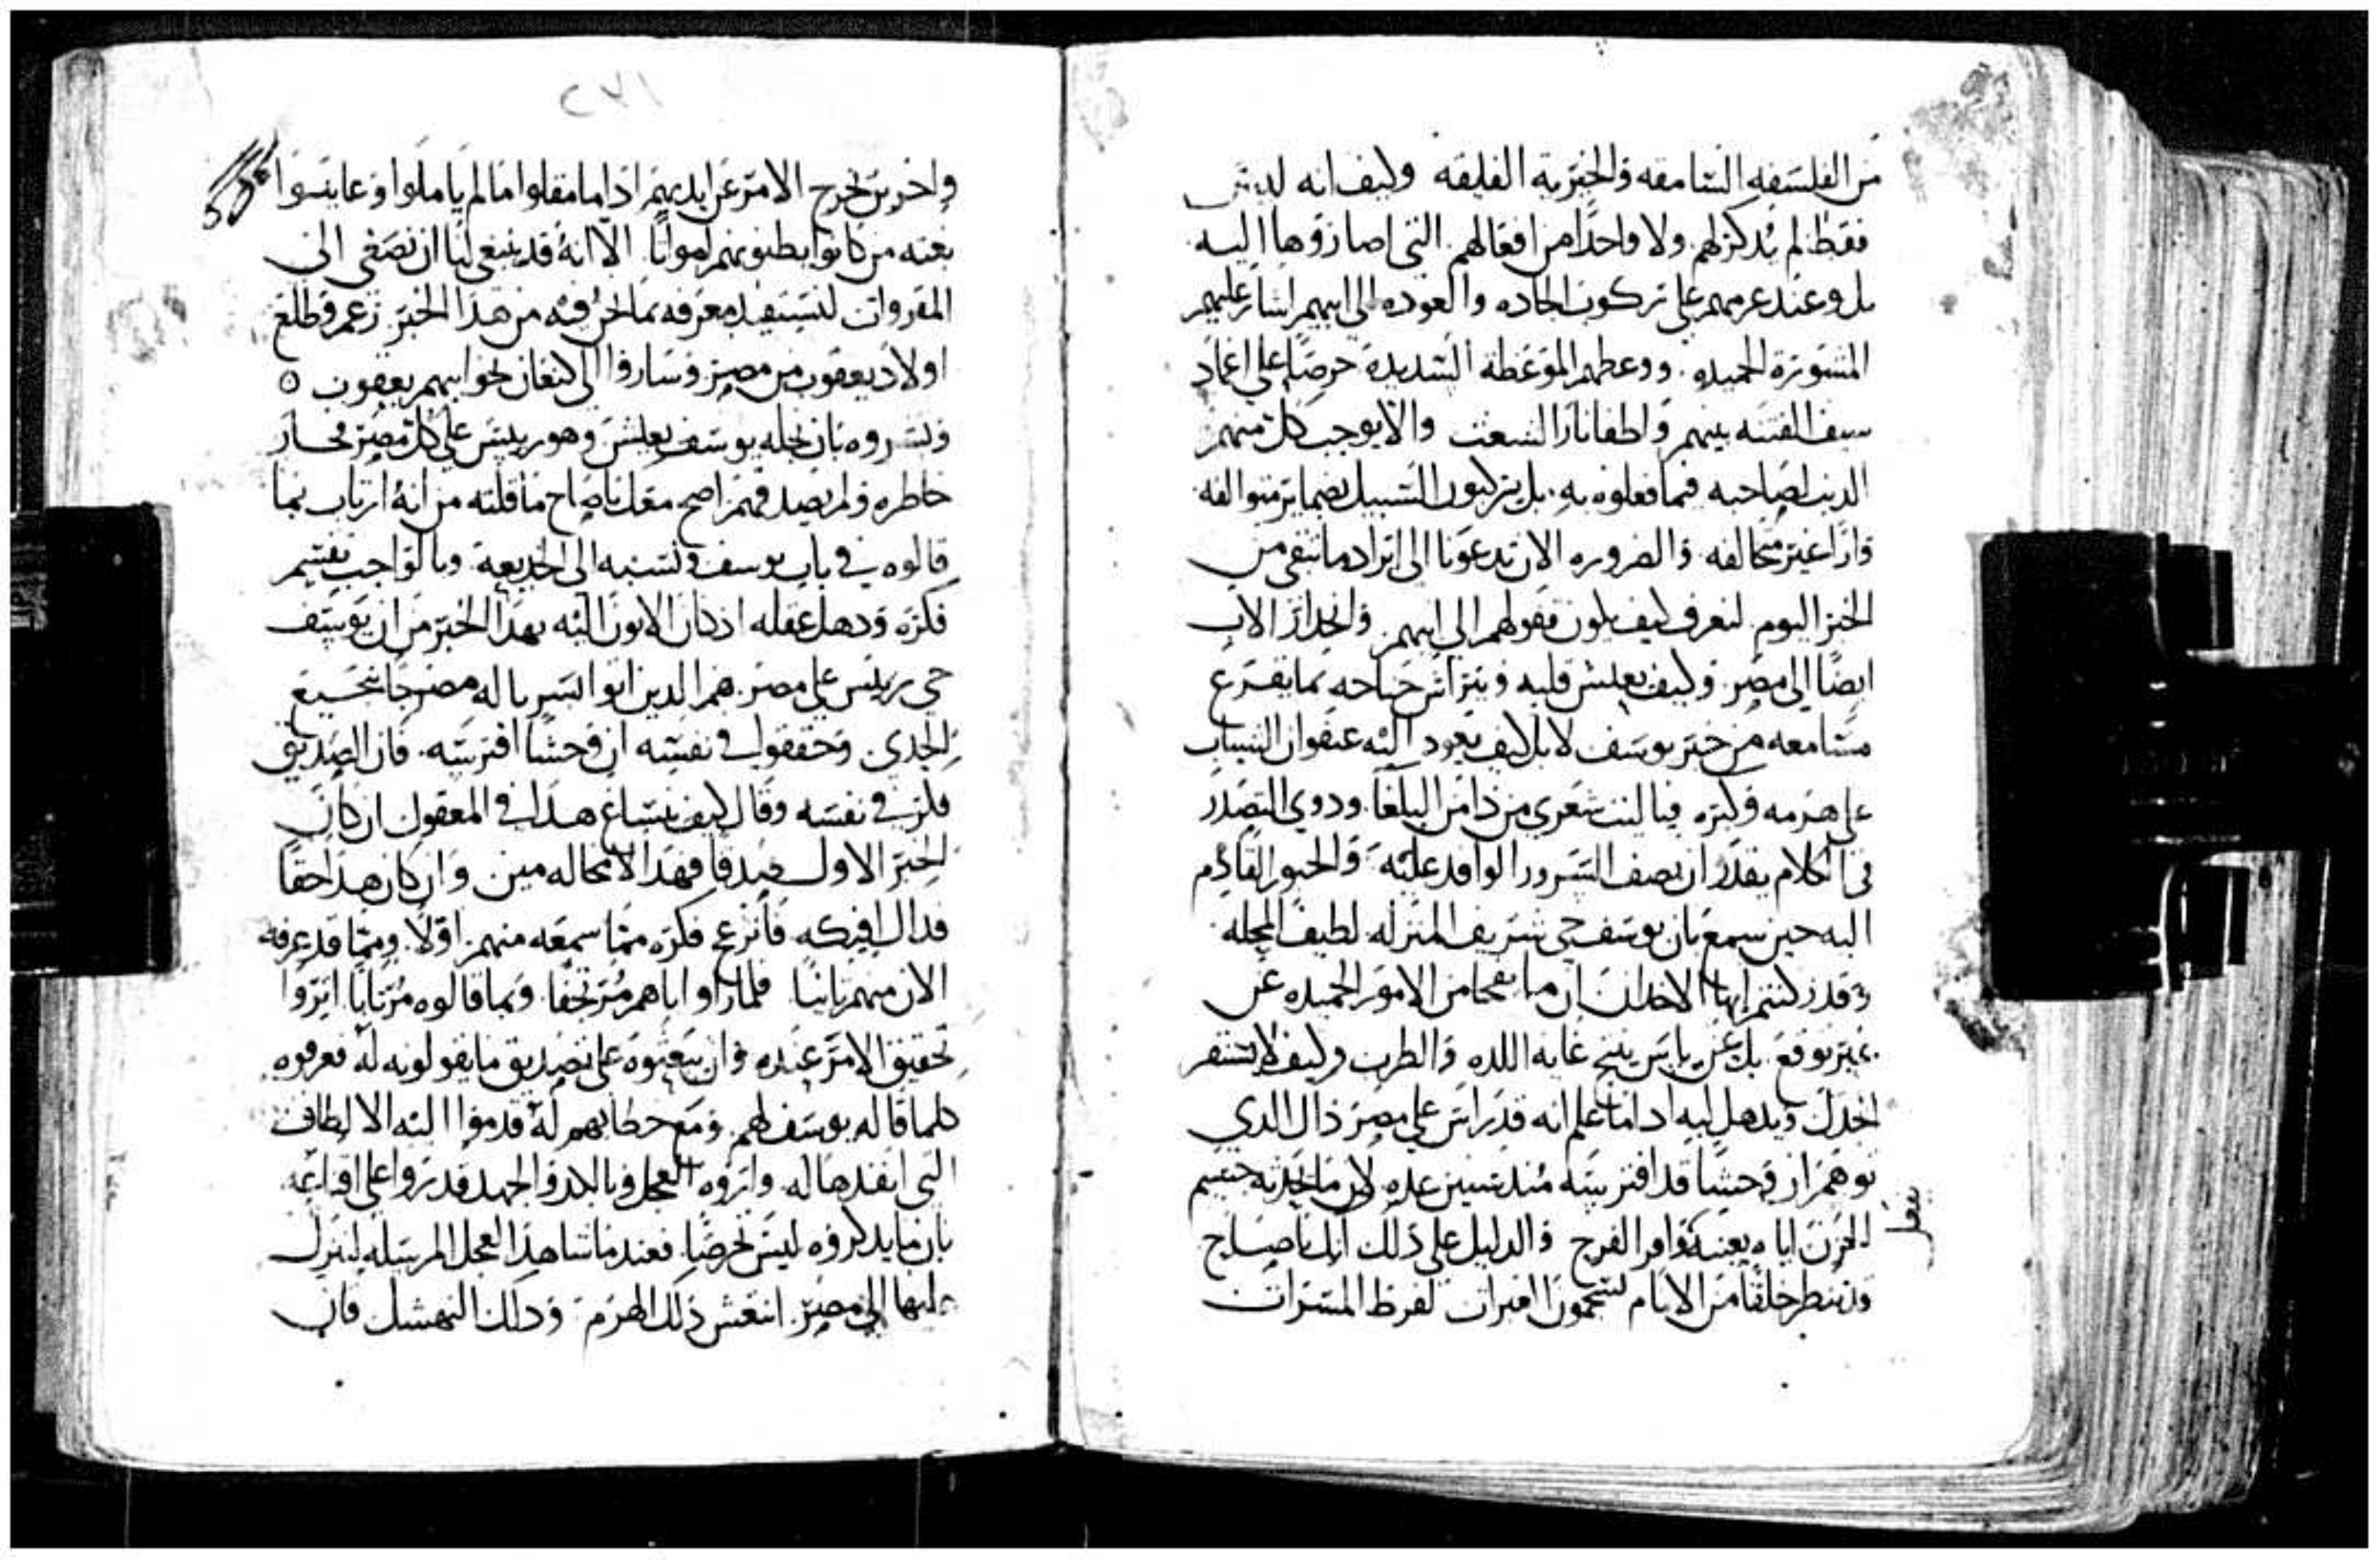 من الفلسفه السامقه والخبريه الفليقه وكيف انه ليس
فقط لم يذكرلهم ولا واحدا من افعالهم التي اصاروها اليه
بل وعند عزمهم على تركون الجاده والعوده الى ابيهم اشار عليهم
المشورة الحميده ووعظهم الموعظة الشديدة حرصا على اغماد
سيف الفتنه بينهم واطفا نار الشعث والا يوجب كل منهم
الذنب لصاحبه فيما فعلوه به بل يتركبون السبيل
غير مخالفه والضروره الان تدعونا الى ايراد ما تبقى من
الخبر اليوم لنعرف كيف يكون قفولهم الى ابيهم وانحدار الاب
ايضا الى مصر وكيف يعيش قلبه وينراش جناحه بما يقرع
مسامعه من خبر يوسف لا بل كيف يعود اليه عنفوان الشباب
على هرمه وكبره فيا ليت شعري من ذا من البلغا وذوي التصدر
في الكلام يقدر ان يصف السرور الوافد عليه والحبور القادم
اليه حين سمع بان يوسف حي شريف المنزله لطيف المحله
وقد ايها الاخلان ان ما من الامور الحميده عن
غير توقع بل عن ياس ينتج غاية اللذه والطرب وكيف لا
الجدل ويذهل لبه اذا ما علم انه قد راس على مصر ذاك الذي
توهم ان وحشا قد افترسه منذ سنين عده لان ما جسم
الحزن اياه يعينه وافر الفرج والدليل على ذلك انك يا صاح
خلقا من الانام لفرط المسرات
يفعل
واخرين يخرج الامر عن ايديهم اذا ما مقلوا ما لم ياملوا وعاينوا
بغته من كانوا يظنونهم امواتا الا انه قد ينبغي لنا ان نصغي الى
المقروات لنستفيد معرفه بما نحن فيه من هذا الخبر زعم وطلع
اولاد يعقوب من مصر وساروا الى كنعان نحو ابيهم يعقوب ه
وبشروه بان نجله يوسف يعيش وهو رييس على كل مصر فحار
خاطره ولم يصدقهم اصح معك يا صاح ما قلته من انه ارتاب بما
قالوه في باب يوسف ونسبه الى الخديعة وبالواجب تقسم
فكره وذهل عقله اذ كان الاتون اليه بهذا الخبر من ان يوسف
حي رييس على مصر هم الذين اتوا السربال له مضرجا بنجيع
الجدي وحققوا في نفسه ان وحشا افترسه فان الصديق
فكر في نفسه وقال كيف ينساغ هذا في المعقول ان كان
الخبر الاول صدقا فهذا لا محاله مين وان كان هذا حقا
فذاك افيكه فانزعج فكره مما سمعه منهم اولا ومما قد عرفه
الان منهم ثانيا فلما راو اباهم مرتجفا وبما قالوه مرتابا اثروا
تحقيق الامر عنده وان يبعثوه على تصديق ما يقولونه له فعرفوه
كلما قاله يوسف لهم ومع خطابهم له قدموا اليه الالطاف
التي انفذها له واروه العجل وبالكد والجهد قدروا على اقناعه
بان ما يذكروه ليس خرصا فعندما شاهد العجل المرسله لينزل
عليها الى مصر انتعش ذلك الهرم وذلك النهشل فان